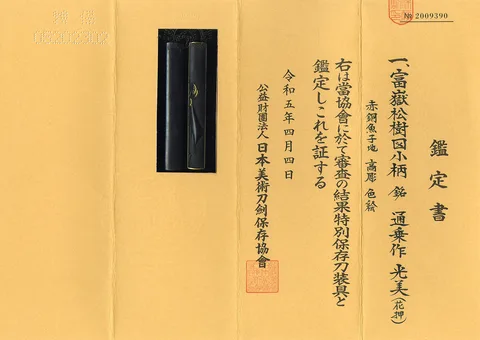 № 2009390
鑑定書
一、富嶽松樹図小柄 銘 通乗作 光美(花押)
赤銅魚子地 高彫 色絵
右は當協會に於て審査の結果特別保存刀装具と
鑑定しこれを証する
令和五年四月四日
公益財團法人 日本美術刀劍保存協會